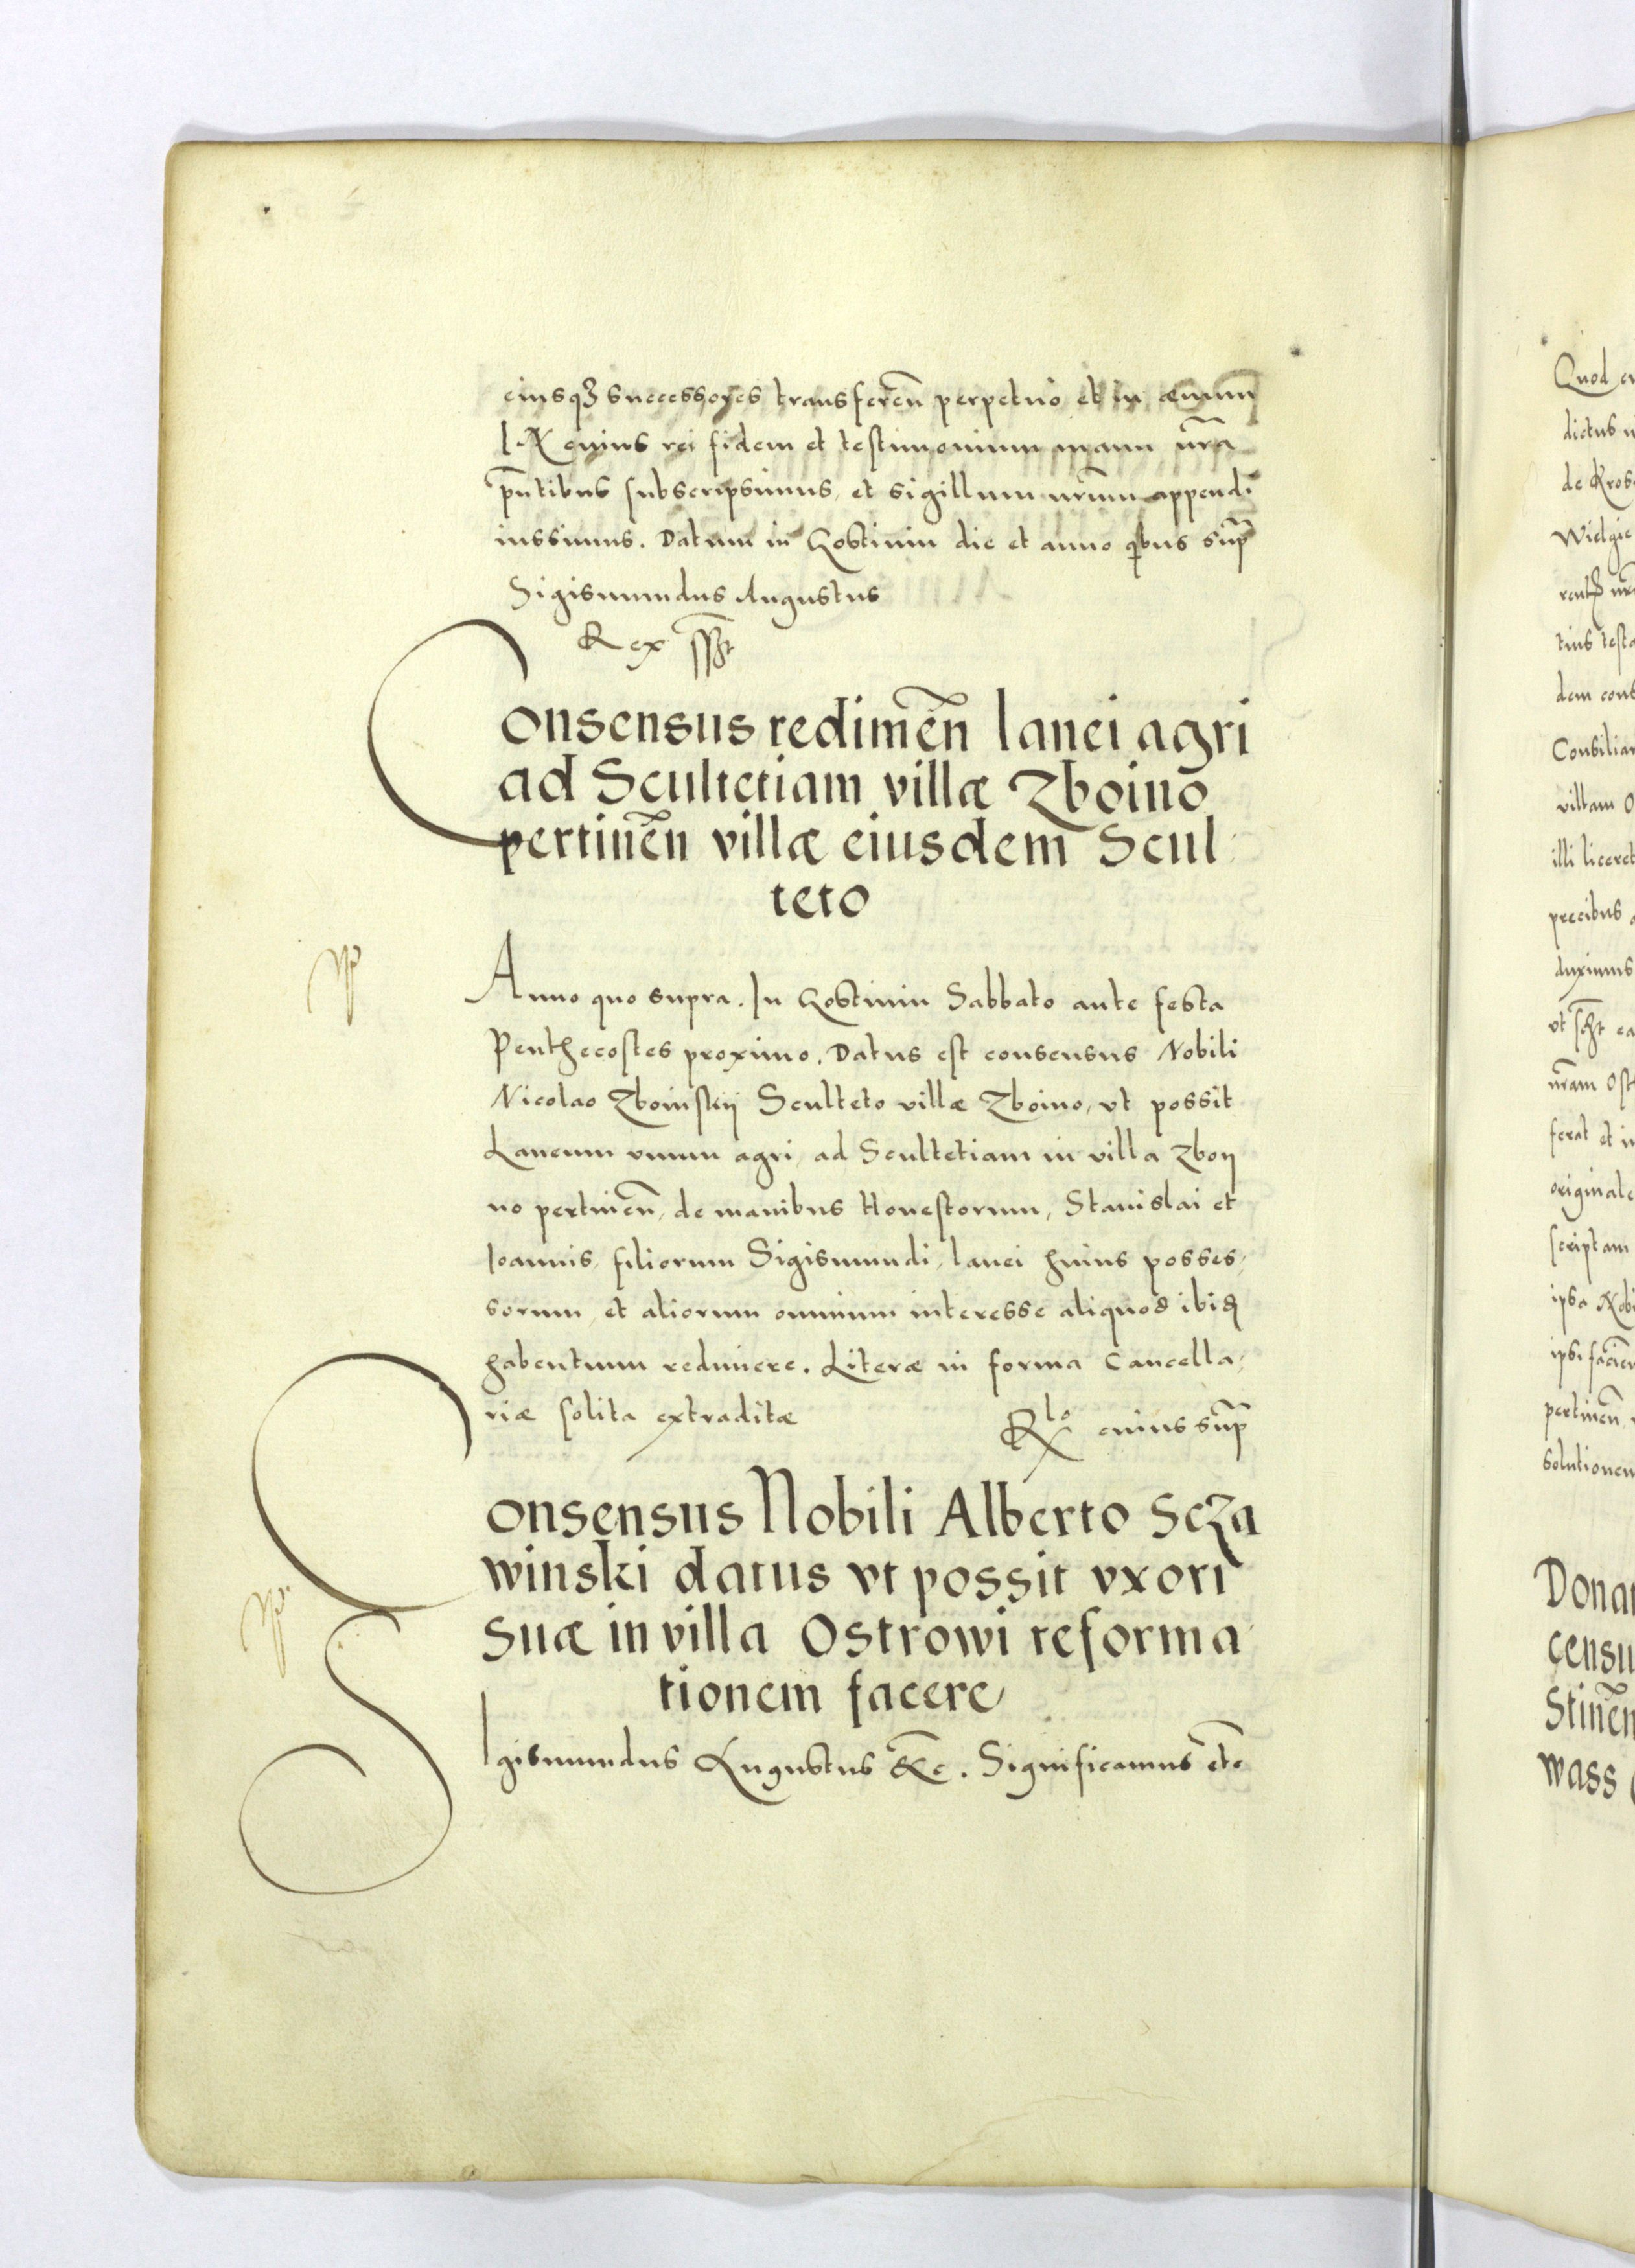 eiusq₃ successores transferen̄ perpetuo et in aeuum
IN cuius rei fidem et testimonium manu nr̄a
pn̄tibus subscripsimus, et sigillum nrm̄ appendi
iussimus. Datum in Gostinin die et anno qibus sup̄
Sigismundus Augustus
Rex sst
Consensus redimen̄ lanei agri
ad Scultetiam villæ Zboino
pertinen̄ villæ eiusdem Scul
teto
Anno quo supra. In Gostinin Sabbato ante festa
Penthecostes proximo. Datus est consensus Nobili
Nicolao Zboinskij Sculteto villæ Zboino, vt possit
Laneum vnum agri, ad Scultetiam in villa Zboij
no pertinen̄, de manibus Honestorum, Stanislai et
Ioannis, filiorum Sigismundi, lanei huius posses,
sorum, et aliorum omnium interesse aliquod ibid
habentium redimere. Literæ in forma Cancella,
riæ solita extraditæ
Rlo cuius sup̄
Consensus Nobili Alberto Scza
winski datus vt possit vxori
suæ in villa Ostrowi reforma
tionem facere
Sigismundus Augustus &c. Significamus etc
Quod
dictus
de Kros
Wielgie
tius testa
dem cons
Consiliar
villam O
illi liceret
precibus
duximus
vt
nr̄am Ost
ferat et in
originale
scriptam
ipsa Nobi
ipsi
pertinen̄
solutionem
Donat
censu
Stinen
wass